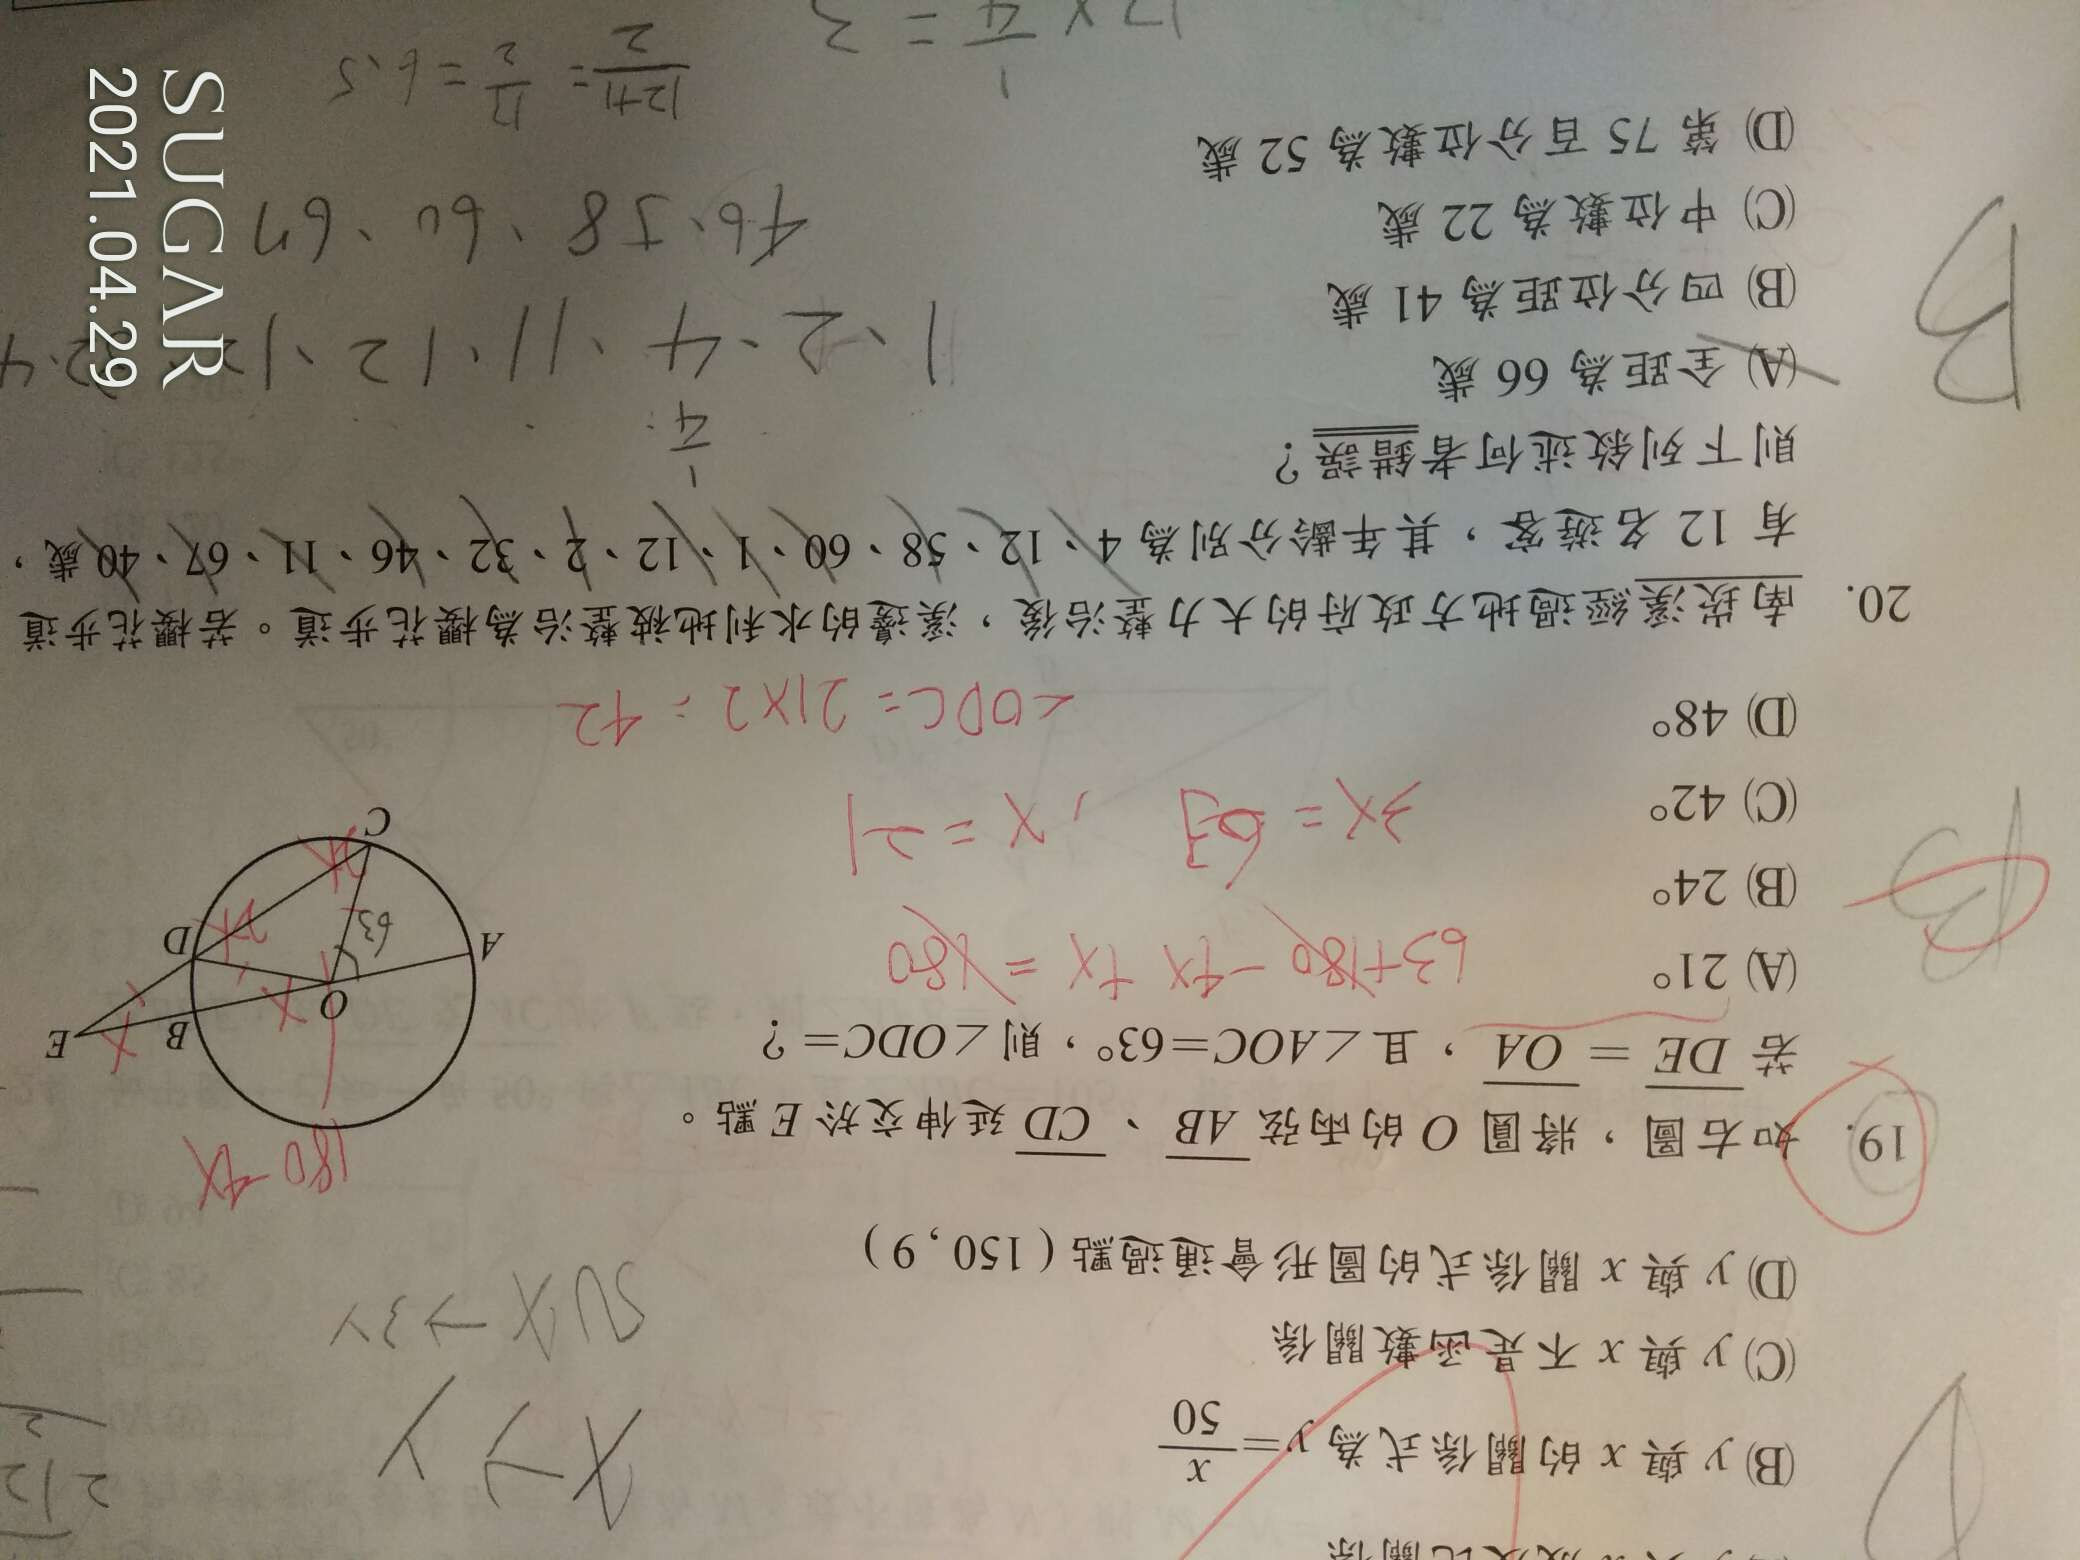 (B) y 與 x 的關係式為 y=x/50
(C) y 與 x 不是函數關係
(D) y 與 x 關係式的圖形會通過點 ( 150 , 9 )
x → y
50x → 3y
19. 如右圖，將圓 O 的兩弦 AB、CD 延伸交於 E 點。
若 DE = OA，且∠AOC=63°，則∠ODC=？
(A) 21°
(B) 24°
(C) 42°
(D) 48°
63+180-4x+x=180
3x=63，x=21
∠ODC=21×2=42
180-4x
E
B
O
A
D
C
63
x
x
2x
2x
20. 南崁溪經過地方政府的大力整治後，溪邊的水利地被整治為櫻花步道。若櫻花步道
有 12 名遊客，其年齡分別為 4、12、58、60、1、12、2、32、46、11、67、40 歲，
則下列敘述何者錯誤？
(A) 全距為 66 歲
(B) 四分位距為 41 歲
(C) 中位數為 22 歲
(D) 第 75 百分位數為 52 歲
B
1/4
1、2、4、11、12、1
46、58、60、67
12+1/2=13/2=6.5
1/4=3
SUGAR
2021.04.29